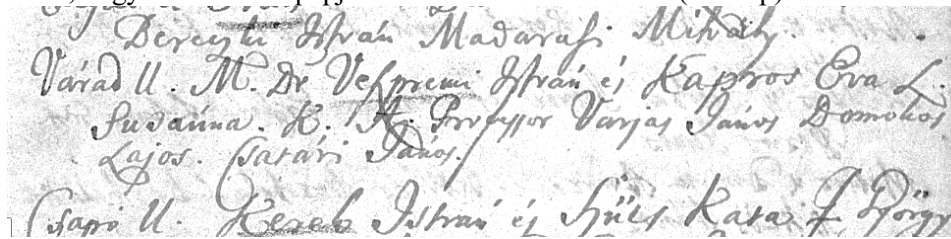 Dereczki Istrán Madarasi Mihály.
Várad U. M. Dr Vespremi Istrán és Kapros Eva L.
Susánna. K. A. Professor Varjas János Domokos
Lajos. Csatári János.
Csapó U. Kerek Istrán és Szűts Kata. f György